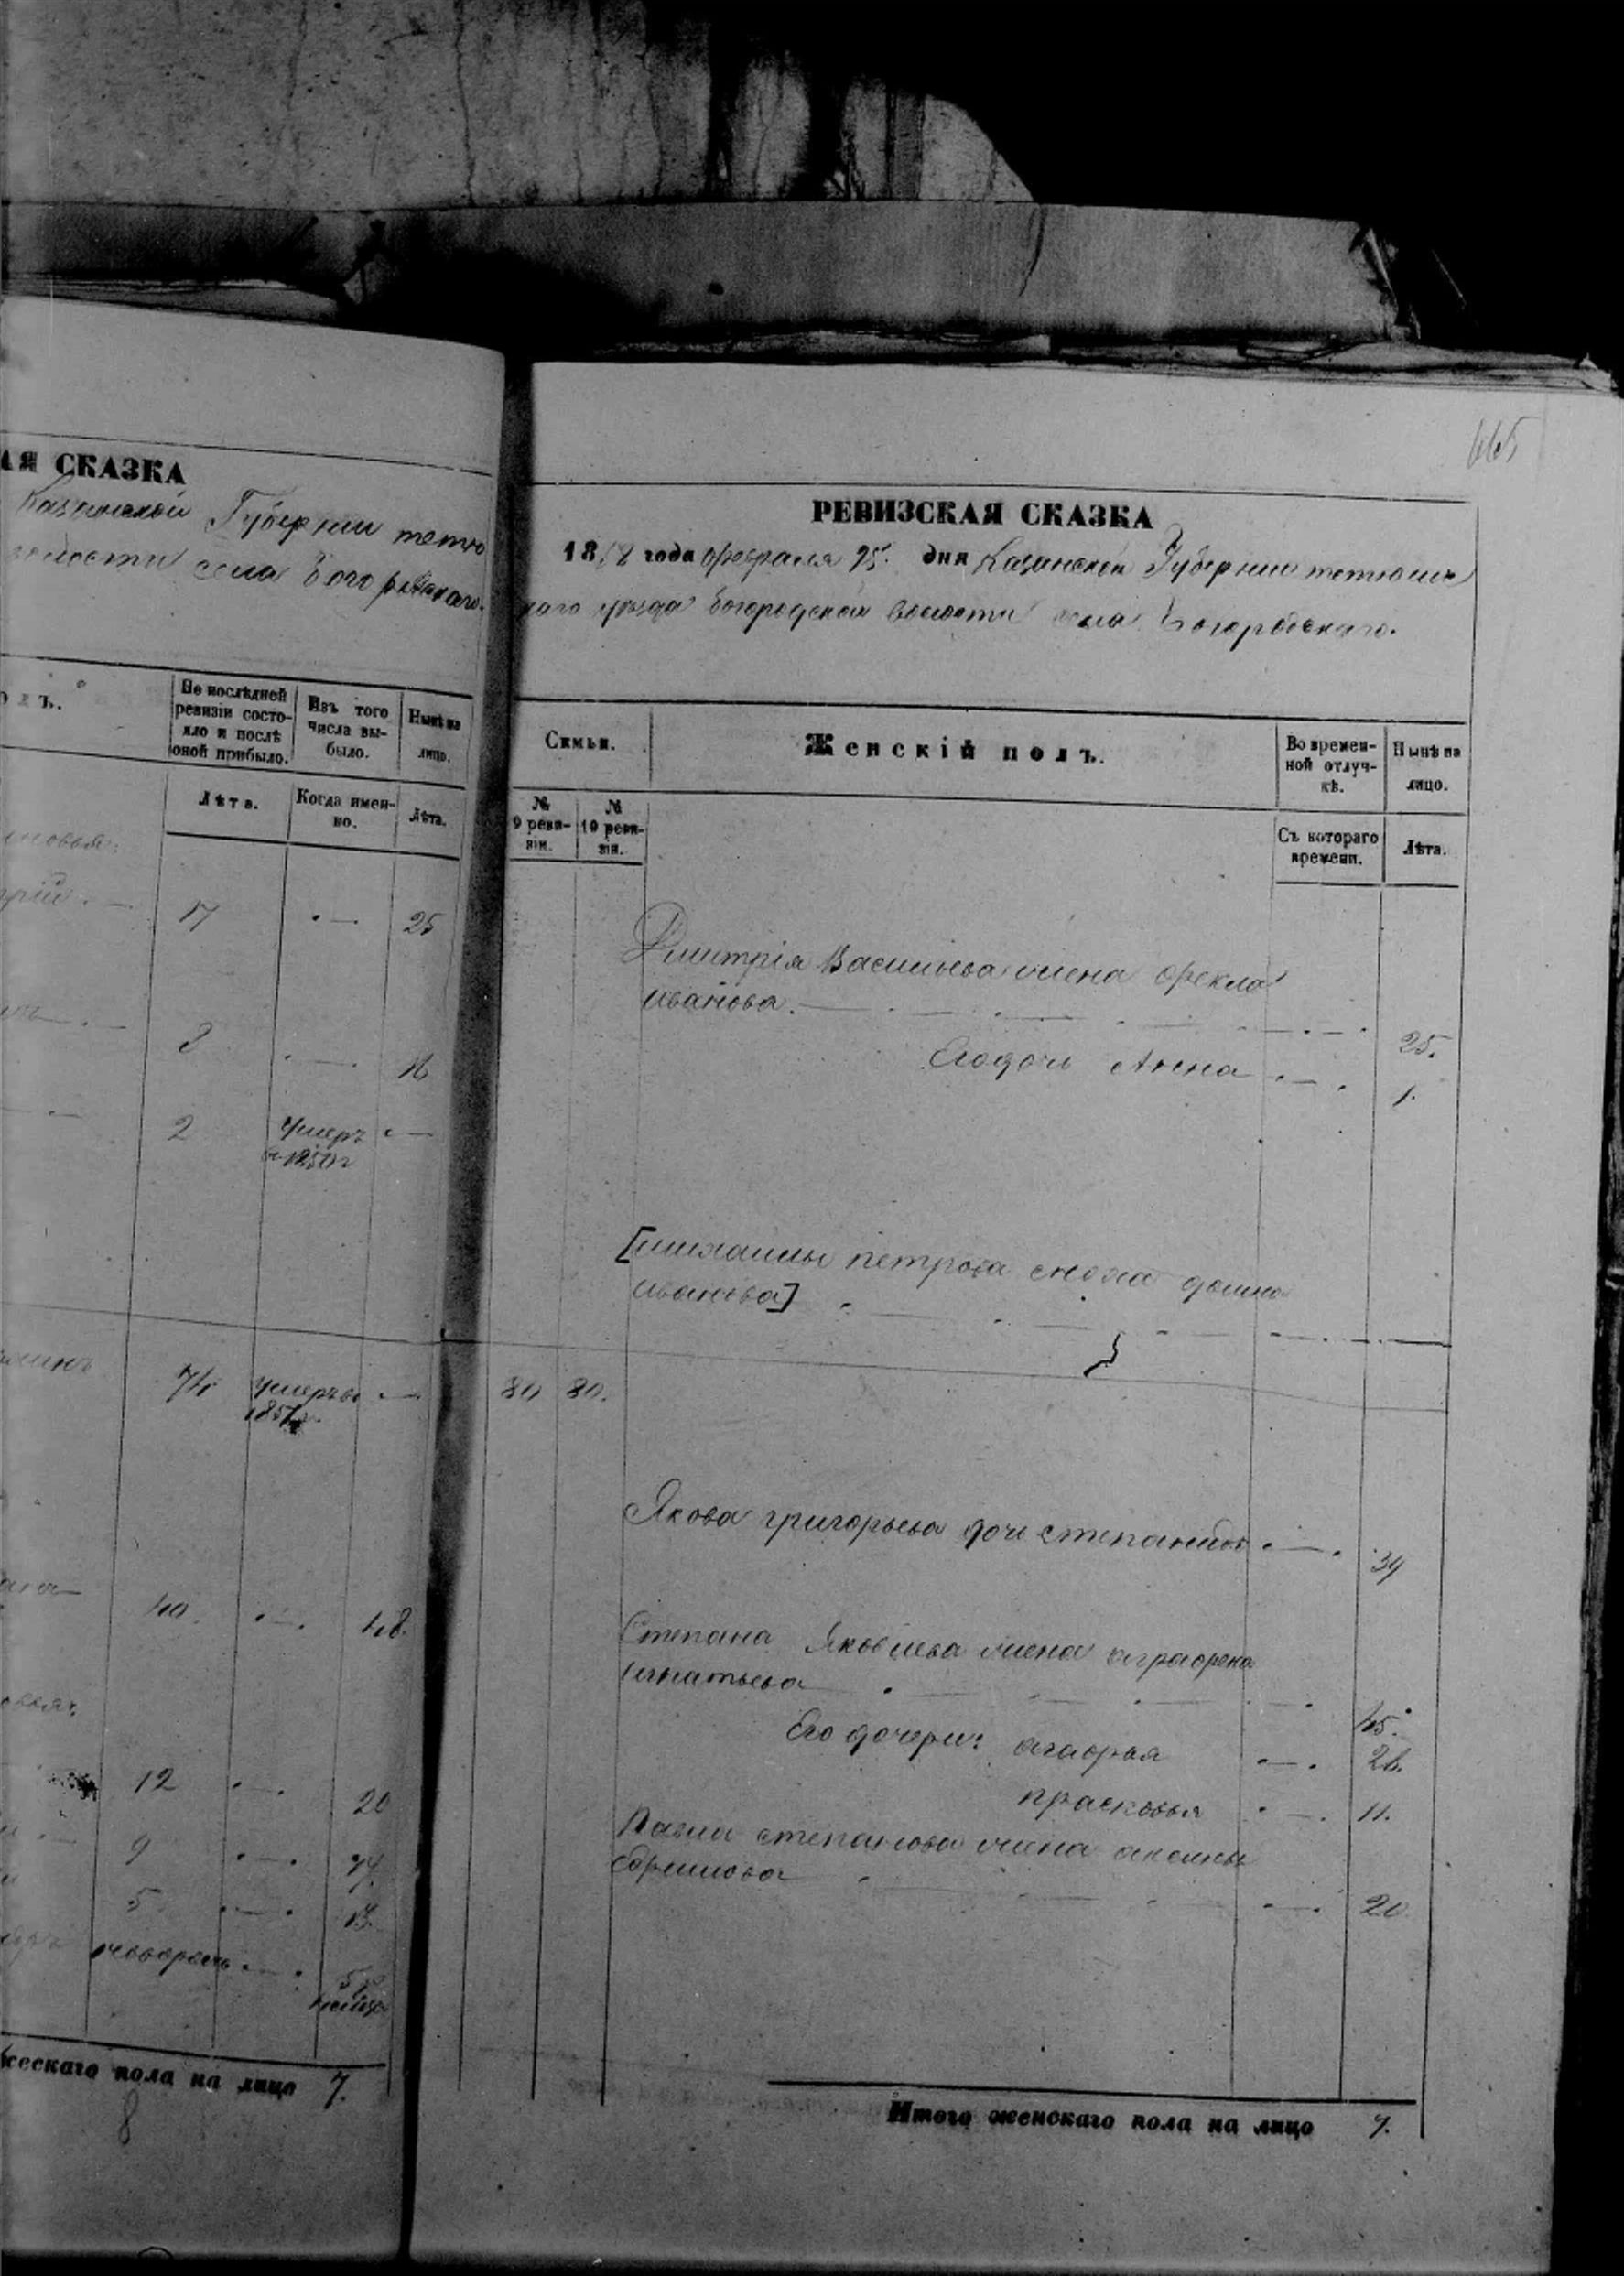 АЯ СКАЗКА
Казанской Губернии тетю
волости села Богородскаго.
ОЛЪ.
По послѣдней ревизіи состояло и послѣ оной прибыло.
Изъ того числа выбыло.
Нынѣ на лицо.
Лѣта.
Когда именно.
Лѣта.
17 25
8 16
2 умеръ
в 1850г
74 умеръ въ
185
40 48.
12 20
9 17.
5 13.
новорожъ 5
жескаго пола на лицо 7.
8
665
РЕВИЗСКАЯ СКАЗКА
1858 года февраля 25. дня Казанской Губернии тетюшс
каго уѣзда богородской волости села Богородскаго.
Семьи.
Женскій полъ.
Во временной отлучкѣ.
Нынѣ на лицо.
№ 9 ревизіи.
№ 10 ревизіи.
Съ котораго времени.
Лѣта.
Дмитрія Васильева жена фекла
иванова. 25.
Его дочь Анна 1.
[михаилы петрова сноха домна
иванова]
80 80.
Якова григорьева дочь степанида 34
Степана Яковлева жена аграфена
игнатьева 45.
Его дочери: агафья 26.
прасковья 11.
Павла степанова жена аксинья
ефимова 20
Итого женскаго пола на лицо 7.